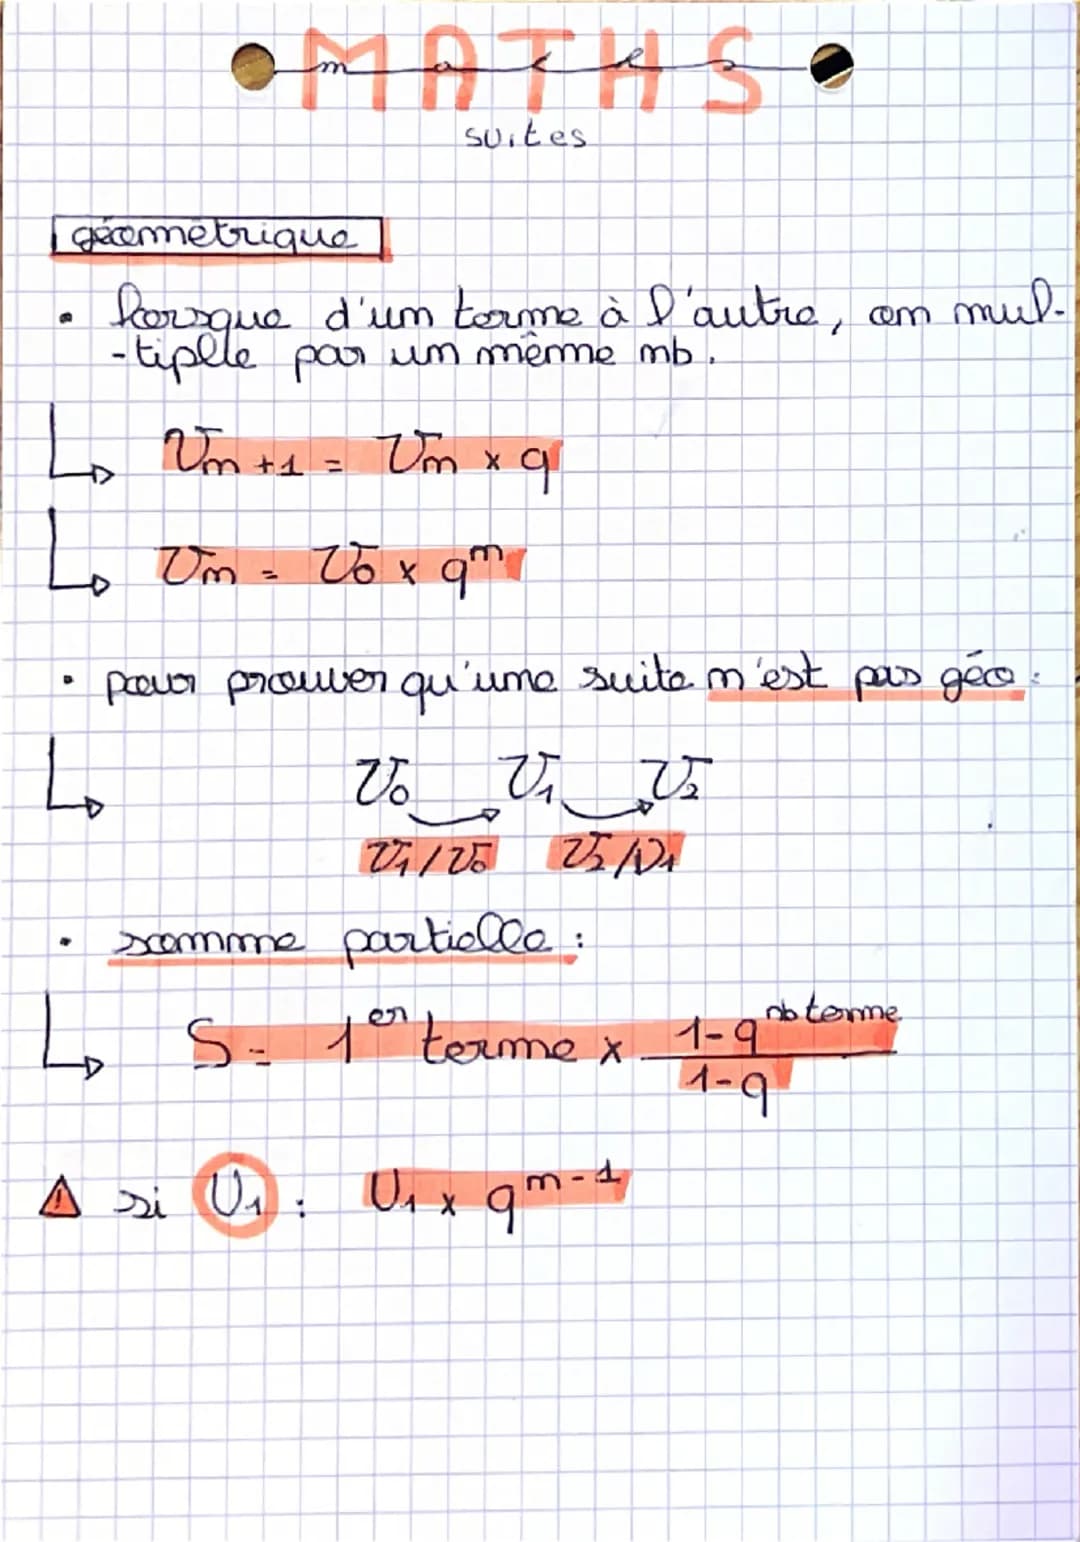 MATHS
mates
suites
géométrique
• lorsque d'un terme à l'autre, on mul-
-tiplie par un même nb.
Vn+1 = Vn x q
Vn = V0 x qⁿ
• pour prouver qu'une suite n'est pas géo :
V0 V1 V2
V1/V0 V2/V1
• somme partielle :
S = 1er terme x (1-q^nb terme)/(1-q)
⚠ si U1 : U1 x qⁿ⁻¹